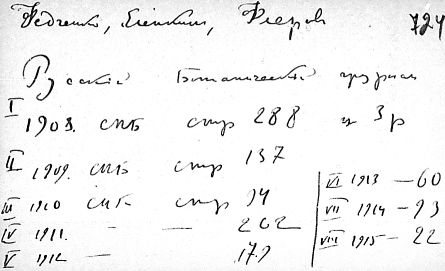 Федченко, Еленкин, Флеров 724
Русский Ботанический журнал
I 1908. СПБ стр 288 ц 3 р
II 1909. СПБ стр 137
III 1910 СПБ стр 94
IV 1911. — — 202
V 1912 — 179
VI 1913 — 60
VII 1914 — 93
VIII 1915 — 22